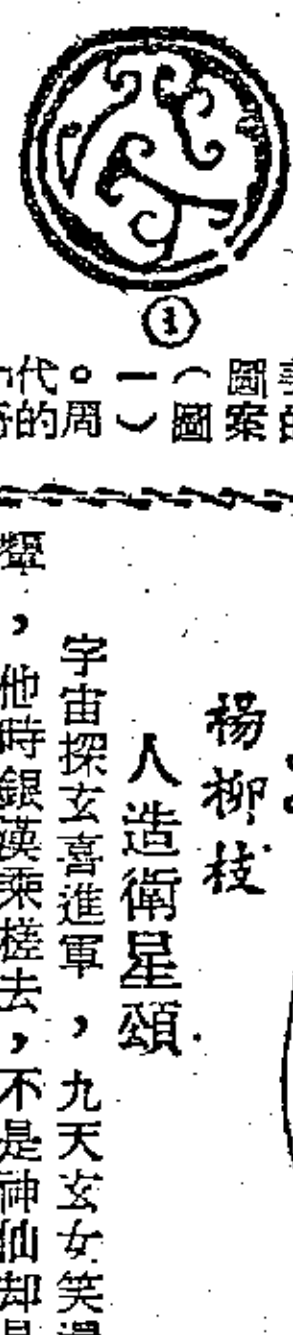 ①
圖案
(一)圖
。周
代的
楊柳枝
人造衛星頌
宇宙探玄喜進軍，九天玄女笑
，他時銀漢乘槎去，不是神仙却